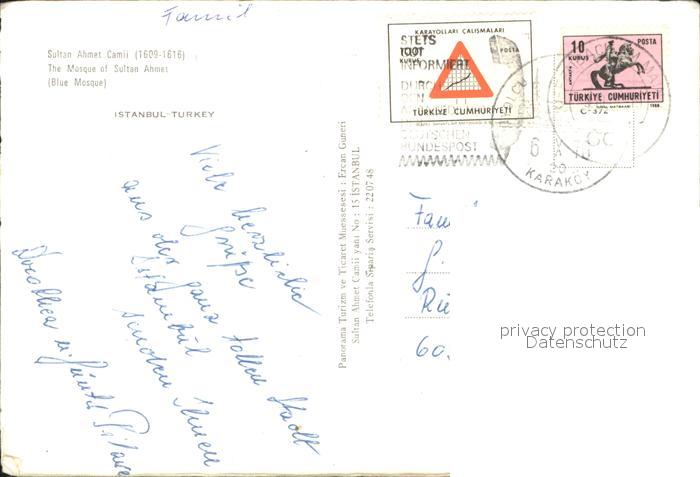 Famil
Sultan Ahmet Camii (1609-1616)
The Mosque of Sultan Ahmet
(Blue Mosque)
ISTANBUL-TURKEY
KARAYOLLARI ÇALIŞMALARI
100
KURUŞ
POSTA
TÜRKİYE CUMHURİYETİ
STETS
INFORMIERT
DURCH
DEUTSCHEN
BUNDESPOST
10
KURUŞ
POSTA
TÜRKİYE CUMHURİYETİ
KARAKÖY
Viele herzliche
Grüße
aus der ganz tollen Stadt
Istanbul
senden Ihnen
Dorothea u. Günter
Panorama Turizm ve Ticaret Muessesesi : Ercan Guneri
Sultan Ahmet Camii yanı No : 15 İSTANBUL
Telefonla Sipariş Servisi : 22 07 48
Fam
60.
privacy protection
Datenschutz